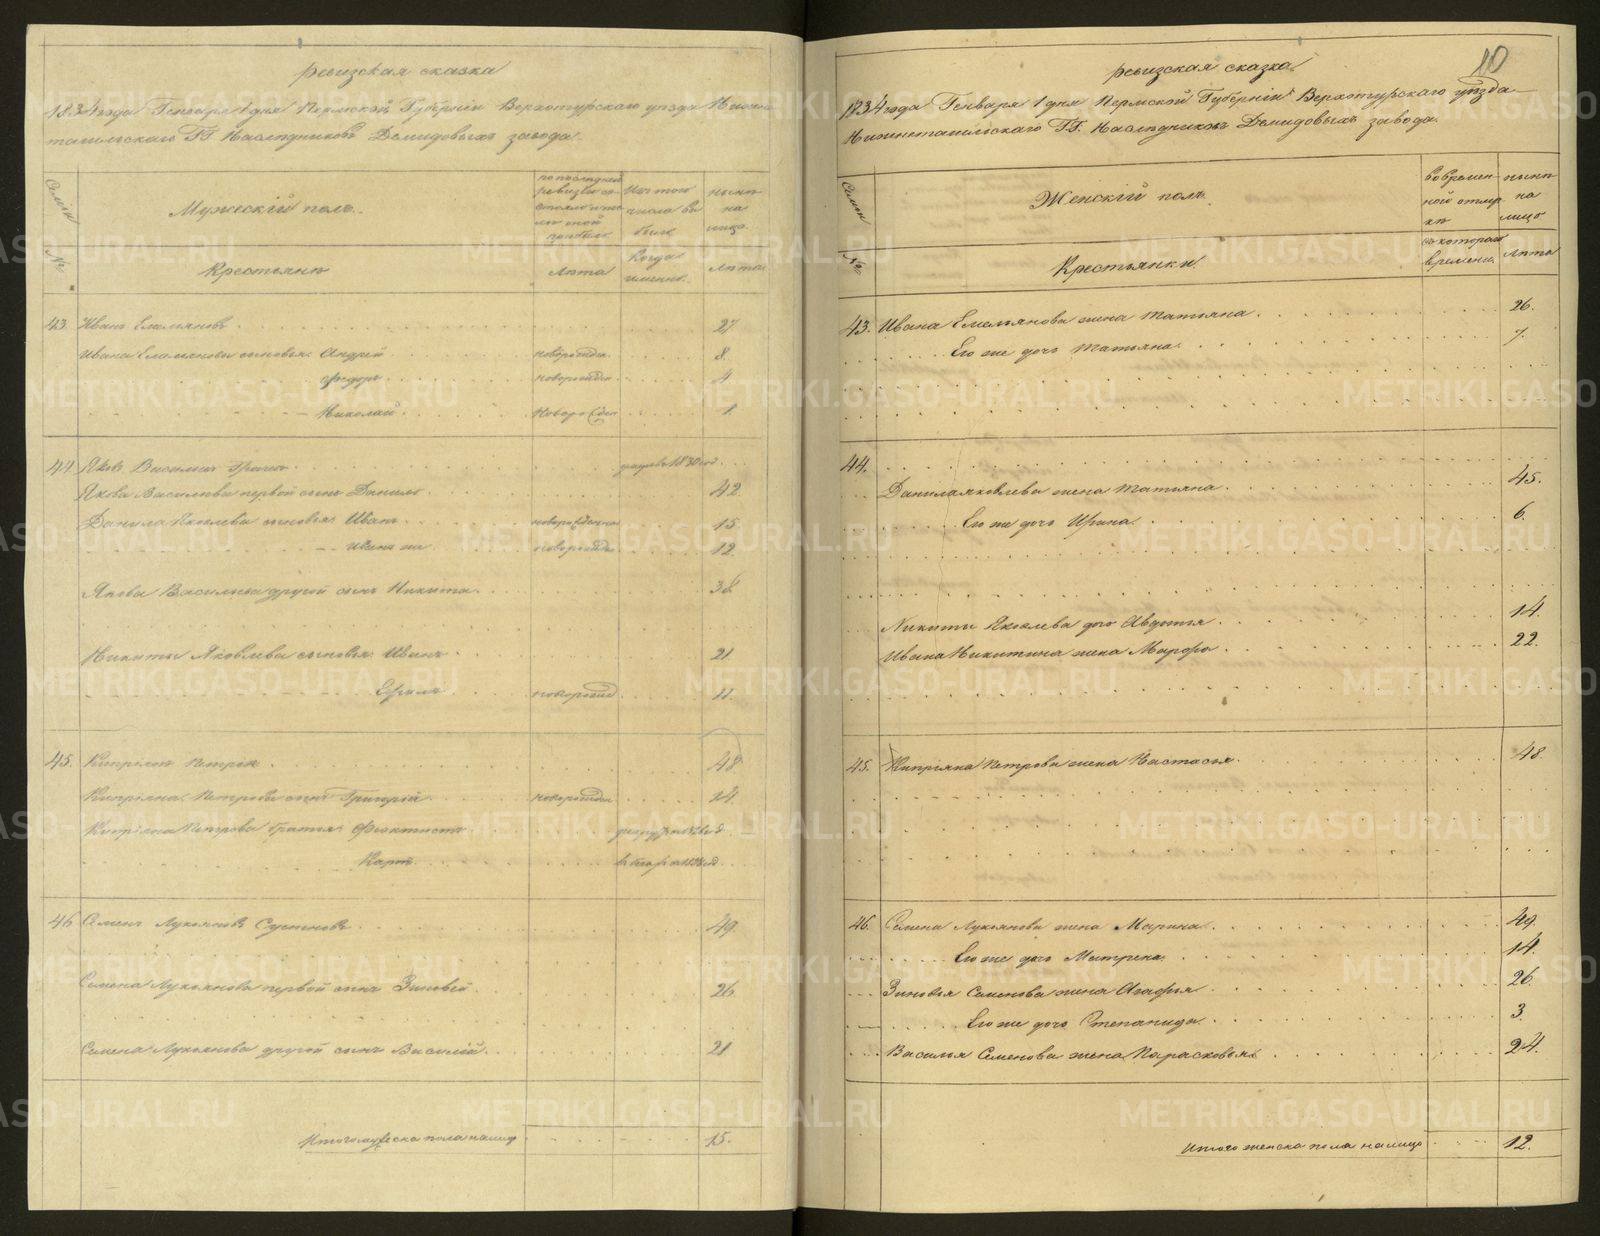 ревизская сказка
1834 года Генваря 1 дня Пермской Губерніи Верхотурскаго уѣзда Нижне
тагильскаго ГГ. Наслѣдниковъ Демидовыхъ завода.
Семьи
№
Мужескій полъ.
по последней ревизіи со стояло и по лѣ оной прибыло
Изъ того числа вы было
нынѣ на лицо
Крестьянѣ
лѣта
Когда именно.
лѣта
43. Иванъ Емельяновъ 27
Ивана Емельянова сыновья: Андрей новорожден 8.
Федоръ новорожден. 4
Николай новорожден 1.
44. Яковъ Васильевъ 1830 год
Якова Васильева первой сынъ Данило 42.
Данила Яковлева сыновья: Иванъ новорожденна 15.
Иванъ же новорожден 12.
Якова Васильева другой сынъ Никита 38
Никиты Яковлева сыновья: Иванъ 21.
новорожд 11.
45. Кипріянъ Петровъ 48
Кипріяна Петрова сынъ Григорій новорожден 14.
Кипріяна Петрова братья: Феоктистъ
Карпъ
46. Семенъ Лукьяновъ 49.
Семена Лукьянова первой сынъ Зиновей 26.
Семена Лукьянова другой сынъ Василій 21
Итого мужеска пола налицо 15.
110
ревизская сказка
1834 года Генваря 1 дня Пермской Губерніи Верхотурскаго уѣзда
Нижнетагильскаго ГГ. Наслѣдниковъ Демидовыхъ завода.
Семьи
№
Женскій полъ.
во времен-ной отлу-кѣ
нынѣ на лицо
Крестьянки.
съ котораго времени.
лѣта
43. Ивана Емельянова жена Татьяна 26.
Его же дочь Татьяна 7.
44.
Данила Яковлева жена Татьяна 45.
Его же дочь Ирина 6.
Никиты Яковлева дочь Авдотья 14.
Ивана Никитина жена Марфа 22.
45. Кипріяна Петрова жена Настасья 48.
46. Семена Лукьянова жена Марина 49.
Его же дочь Матрена 14.
Зиновья Семенова жена Агафья 26.
Его же дочь Степанида 3.
Василья Семенова жена Парасковья 24.
Итого женска пола налицо 12.
METRIKI.GASO-URAL.RU